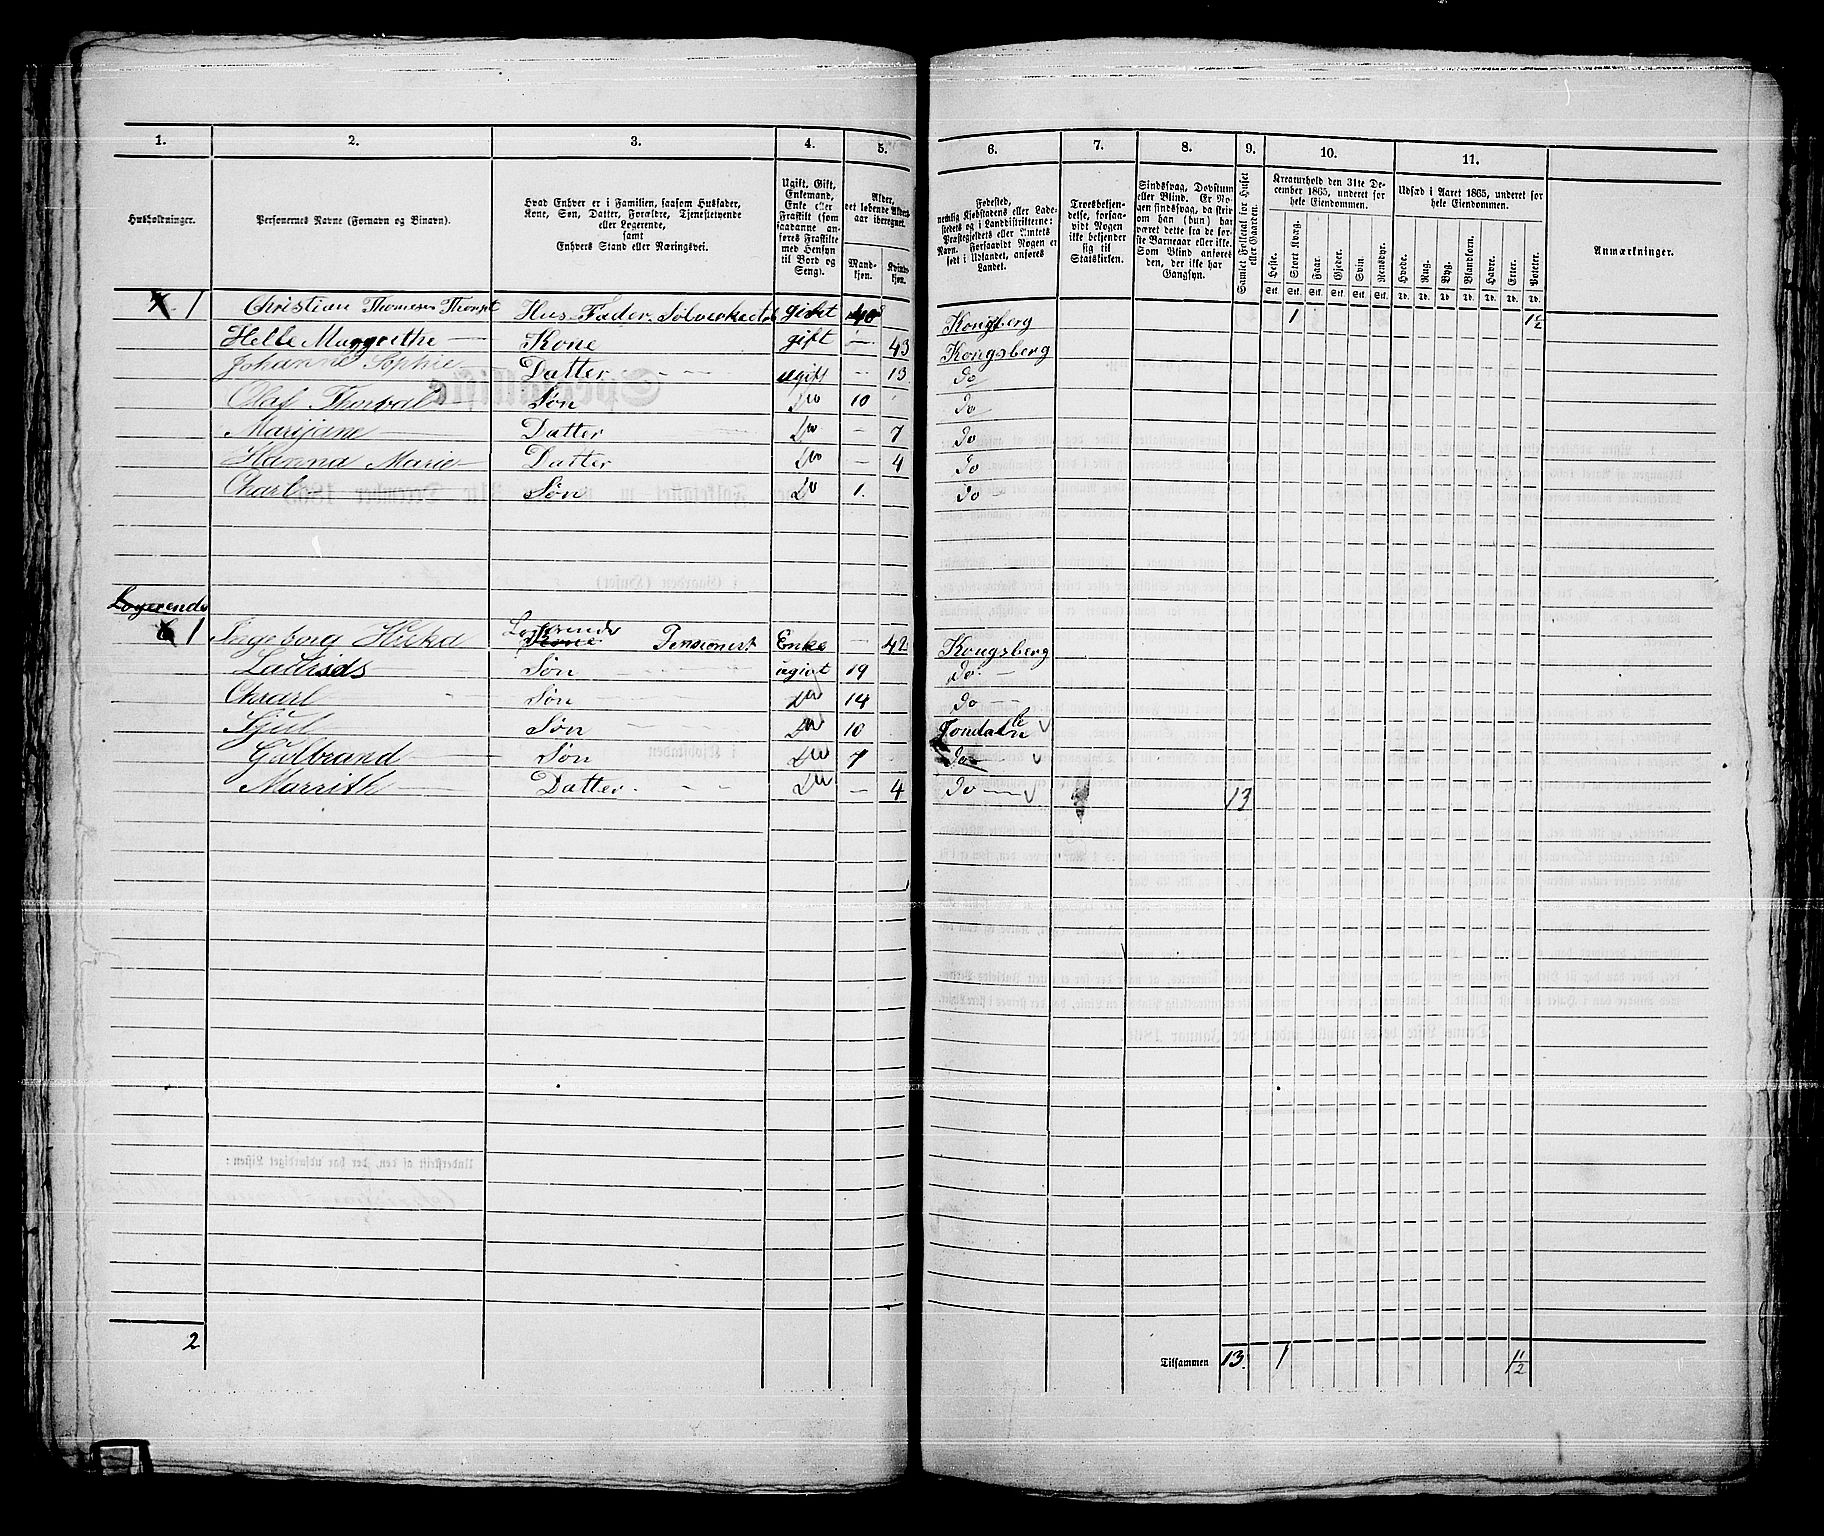 1. 2. 3. 4. 5. 6. 7. 8. 9. 10. 11.
Husholdninger.
Personernes Navne (Fornavn og Binavn).
Hvad Enhver er i Familien, saasom Husfader, Kone, Søn, Datter, Forældre, Tjenestetyende eller Logerende, samt Enhvers Stand eller Næringsvei.
Ugift, Gift, Enkemand, Enke eller Fraskilt (som saadanne anføres Fraskilte med Hensyn til Bord og Seng).
Alder, det løbende Alders-aar iberegnet.
Mand-kjøn. Kvinde-kjøn.
Fødested, nemlig Kjøbstadens eller Ladestedets og i Landdistrikterne: Præstegjeldets eller Amtets Navn. Forsaavidt Nogen er født i Udlandet, anføres Landet.
Troesbekjendelse, forsaavidt Nogen ikke bekjender sig til Statskirken.
Sindssvag, Døvstum eller Blind. Er Nogen sindssvag, da skrives om han (hun) har været dette fra de første Barneaar eller ikke. Som Blind anføres den, der ikke har Gangsyn.
Samlet Folketal for Huset eller Gaarden.
Kreaturhold den 31te December 1865, underet for hele Eiendommen.
Heste. Stort Kvæg. Faar. Gjeder. Svin. Rensdyr.
Stk. Stk. Stk. Stk. Stk. Stk.
Udsæd i Aaret 1865, underet for hele Eiendommen.
Hvede. Rug. Byg. Blandkorn. Havre. Erter. Poteter.
Td. Td. Td. Td. Td. Td. Td.
Anmærkninger.
1 Christian Thomesen Hus-Fader gift 40 Kongberg 1 1 1/2
Helle Margrethe Kone gift 43 Kongsberg
Johanne Sophie Datter ugift 13 do
Olaf Thorval Søn Do 10 do
Marijane Datter Do 7 do
Hanna Marie Datter Do 4 do
Charl Søn Do 1. do
Logerende
1 Ingeborg Logerende Pensionert Enke 42 Kongsberg
Laurids Søn ugivt 19 do
Charl Søn Do 14 do
Sjul Søn Do 10 Jondalen
Gulbrand Søn Do 7 do
Marrith Datter Do 4 do 13
2 Tilsammen 13. 1 1 1/2